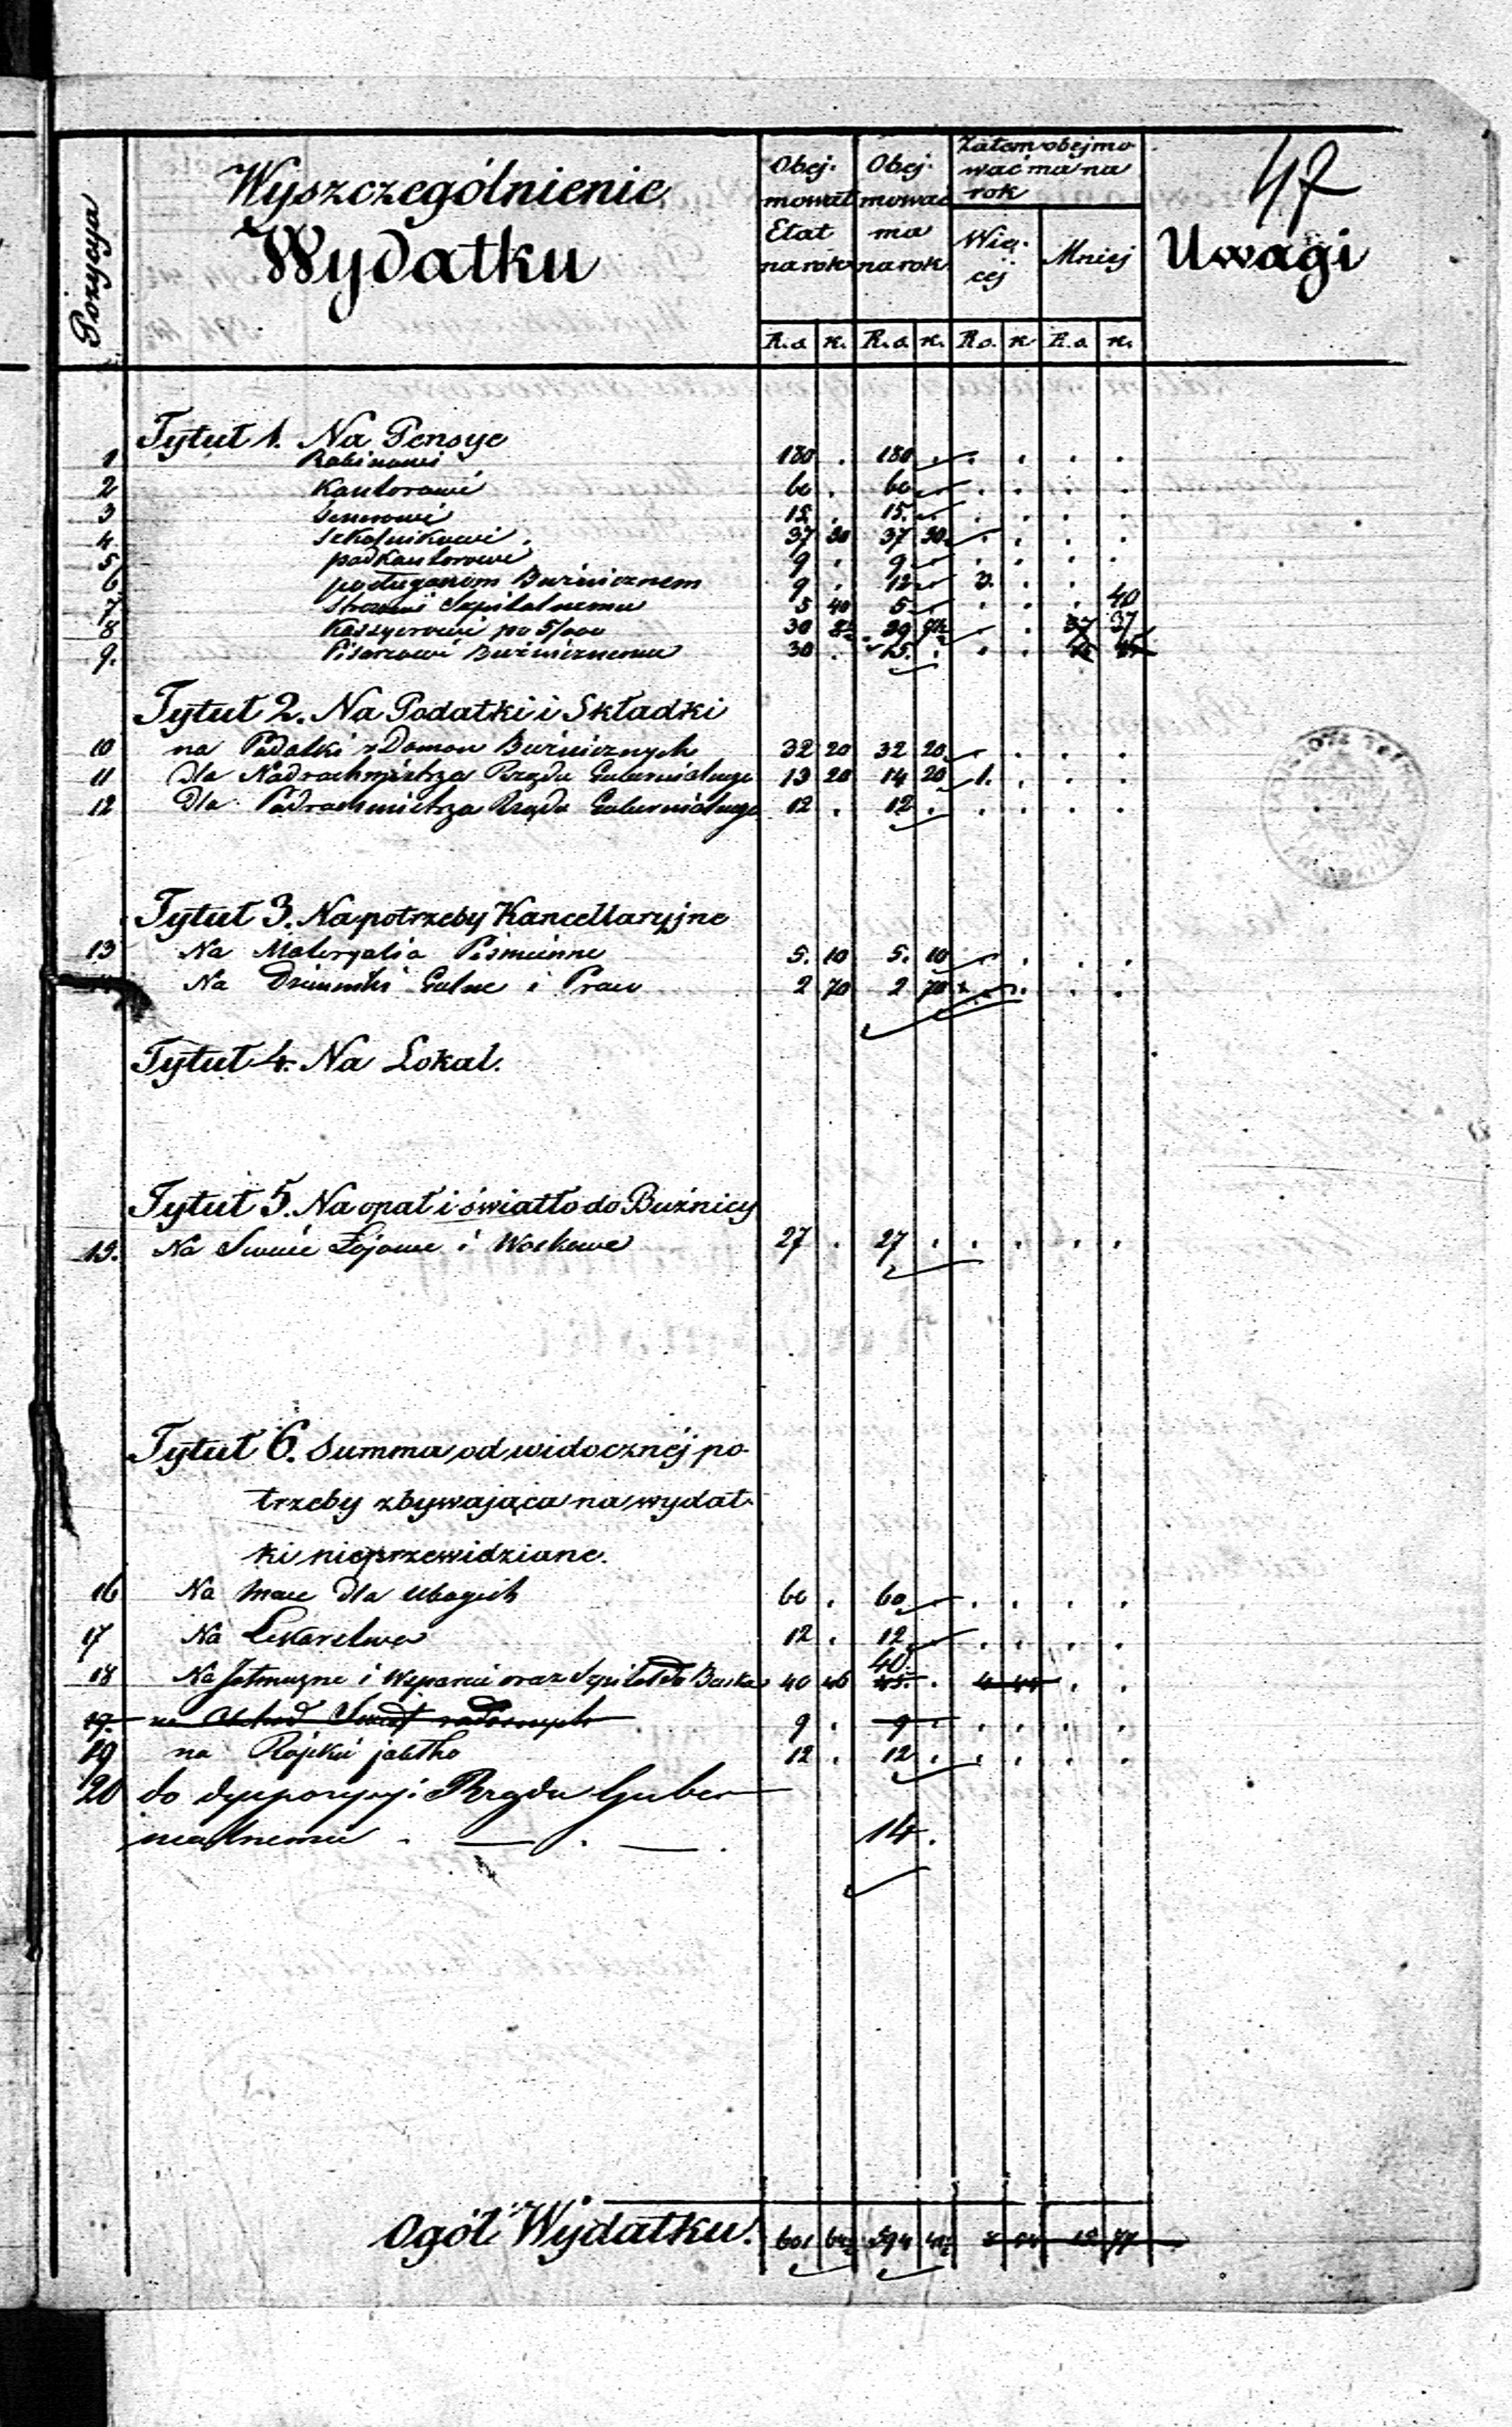 47
Pozycya
Wyszczególnienie
Wydatku
Obej-
mował
Etat
na rok
Obej-
mować
ma
na rok
Zatem obejmo
wać ma na
rok
Wię-
cej
Mniej
Uwagi
R.s. k. R.s. k. R.s. k. R.s. k.
Tytuł 1. Na Pensye
1 Rabinowi 180 . 180 . . . . .
2 Kantorowi 60 . 60 . . . . .
3 15 . 15 . . . . .
4 Szkolnikowi 37 30 37 30 . . . .
5 podkantorowi 9 . 9 . . . . .
6 Bużnicznem 9 . 12 . 3 . . .
7 Stróżowi Szpitalnemu 5 40 5 . . . . 40
8 Kassyerowi po 5/100 30 29 . . 37
9. Pisarzowi Bużnicznemu 30 . 15 . . .
Tytuł 2. Na Podatki i Składki
10 na Podatki z Domow Bużnicznych 32 20 32 20 . . . .
11 Dla Nadrachmistrza Rządu Gubernialnego 13 20 14 20 1. . . .
12 Dla Podrachmistrza Rządu Gubernialnego 12 . 12 . . . . .
Tytuł 3. Na potrzeby Kancellaryjne
13 Na Materyalia Piśmienne 5. 10 5. 10 . . . .
Na Dzienniki Gube i Praw 2 70 2 70 . . . .
Tytuł 4. Na Lokal.
Tytuł 5. Na opał i światło do Bużnicy
15. Na Świece Łojowe i Woskowe 27 . 27 . . . . .
Tytuł 6. Summa od widocznéj po-
trzeby zbywająca na wydat-
ki nieprzewidziane.
16 Na mace dla Ubogich 60 . 60 . . . . .
17 Na Lekarstwa 12 . 12 . . . . .
40
18 Na Jałmużne i Wsparcie oraz Szpital 40 45 . . .
19. na Obchod Świąt radosnych 9 . 9 . . . . .
19 na Rajskie jabłko 12 . 12 . . . . .
20 do dyspozycyi Rządu Guber
nialnemu 14.
Ogół Wydatku. 601 594